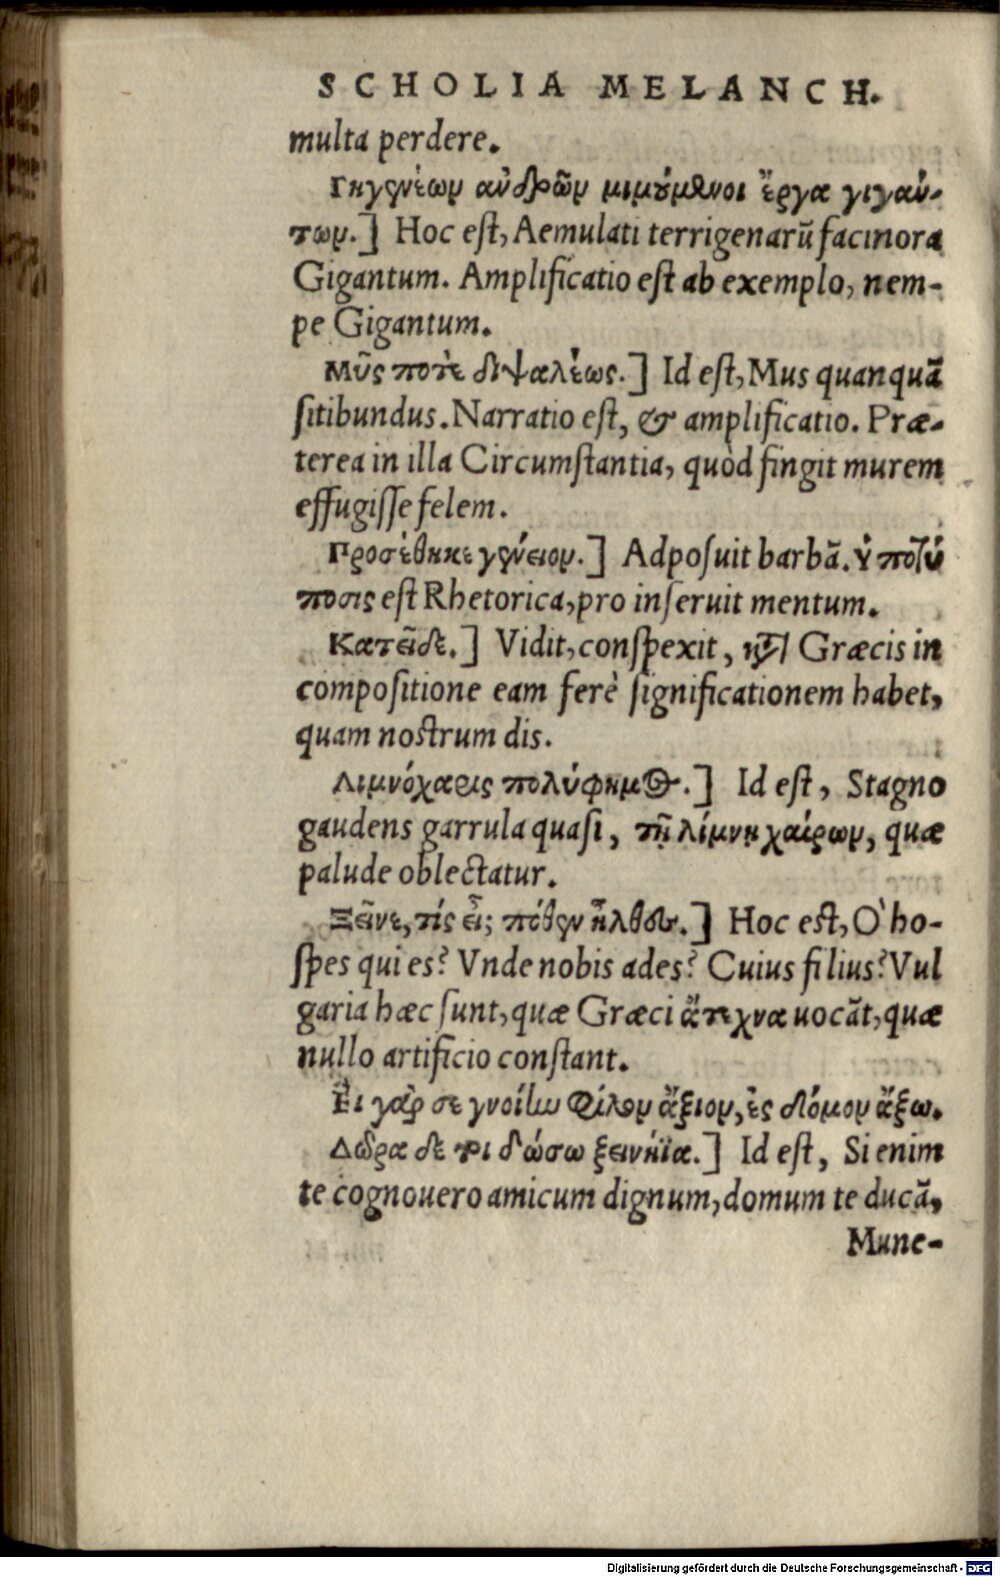 SCHOLIA MELANCH.
multa perdere.
Γηγενέων ἀνδρῶν μιμούμενοι ἔργα γιγάν-
των.] Hoc est, Aemulati terrigenarũ facinora
Gigantum. Amplificatio est ab exemplo, nem-
pe Gigantum.
Μῦς ποτὲ διψαλέως.] Id est, Mus quanquã
sitibundus. Narratio est, & amplificatio. Præ-
terea in illa Circumstantia, quòd fingit murem
effugisse felem.
Προσέθηκε γένειον.] Adposuit barbã. ὑποτύ
πωσις est Rhetorica, pro inseruit mentum.
Κατεῖδε.] Vidit, conspexit, κατὰ Græcis in
compositione eam ferè significationem habet,
quam nostrum dis.
Λιμνόχαρις πολύφημος.] Id est, Stagno
gaudens garrula quasi, τῇ λίμνῃ χαίρων, quæ
palude oblectatur.
Ξεῖνε, τίς εἶ; πόθεν ἦλθες.] Hoc est, O' ho-
spes qui es? Vnde nobis ades? Cuius filius? Vul
garia hæc sunt, quæ Græci ἄτεχνα uocãt, quæ
nullo artificio constant.
Εἰ γάρ σε γνοίην φίλον ἄξιον, ἐς δόμον ἄξω.
Δῶρα δέ τοι δώσω ξεινήϊα.] Id est, Si enim
te cognouero amicum dignum, domum te ducã,
Mune-
Digitalisierung gefördert durch die Deutsche Forschungsgemeinschaft - DFG